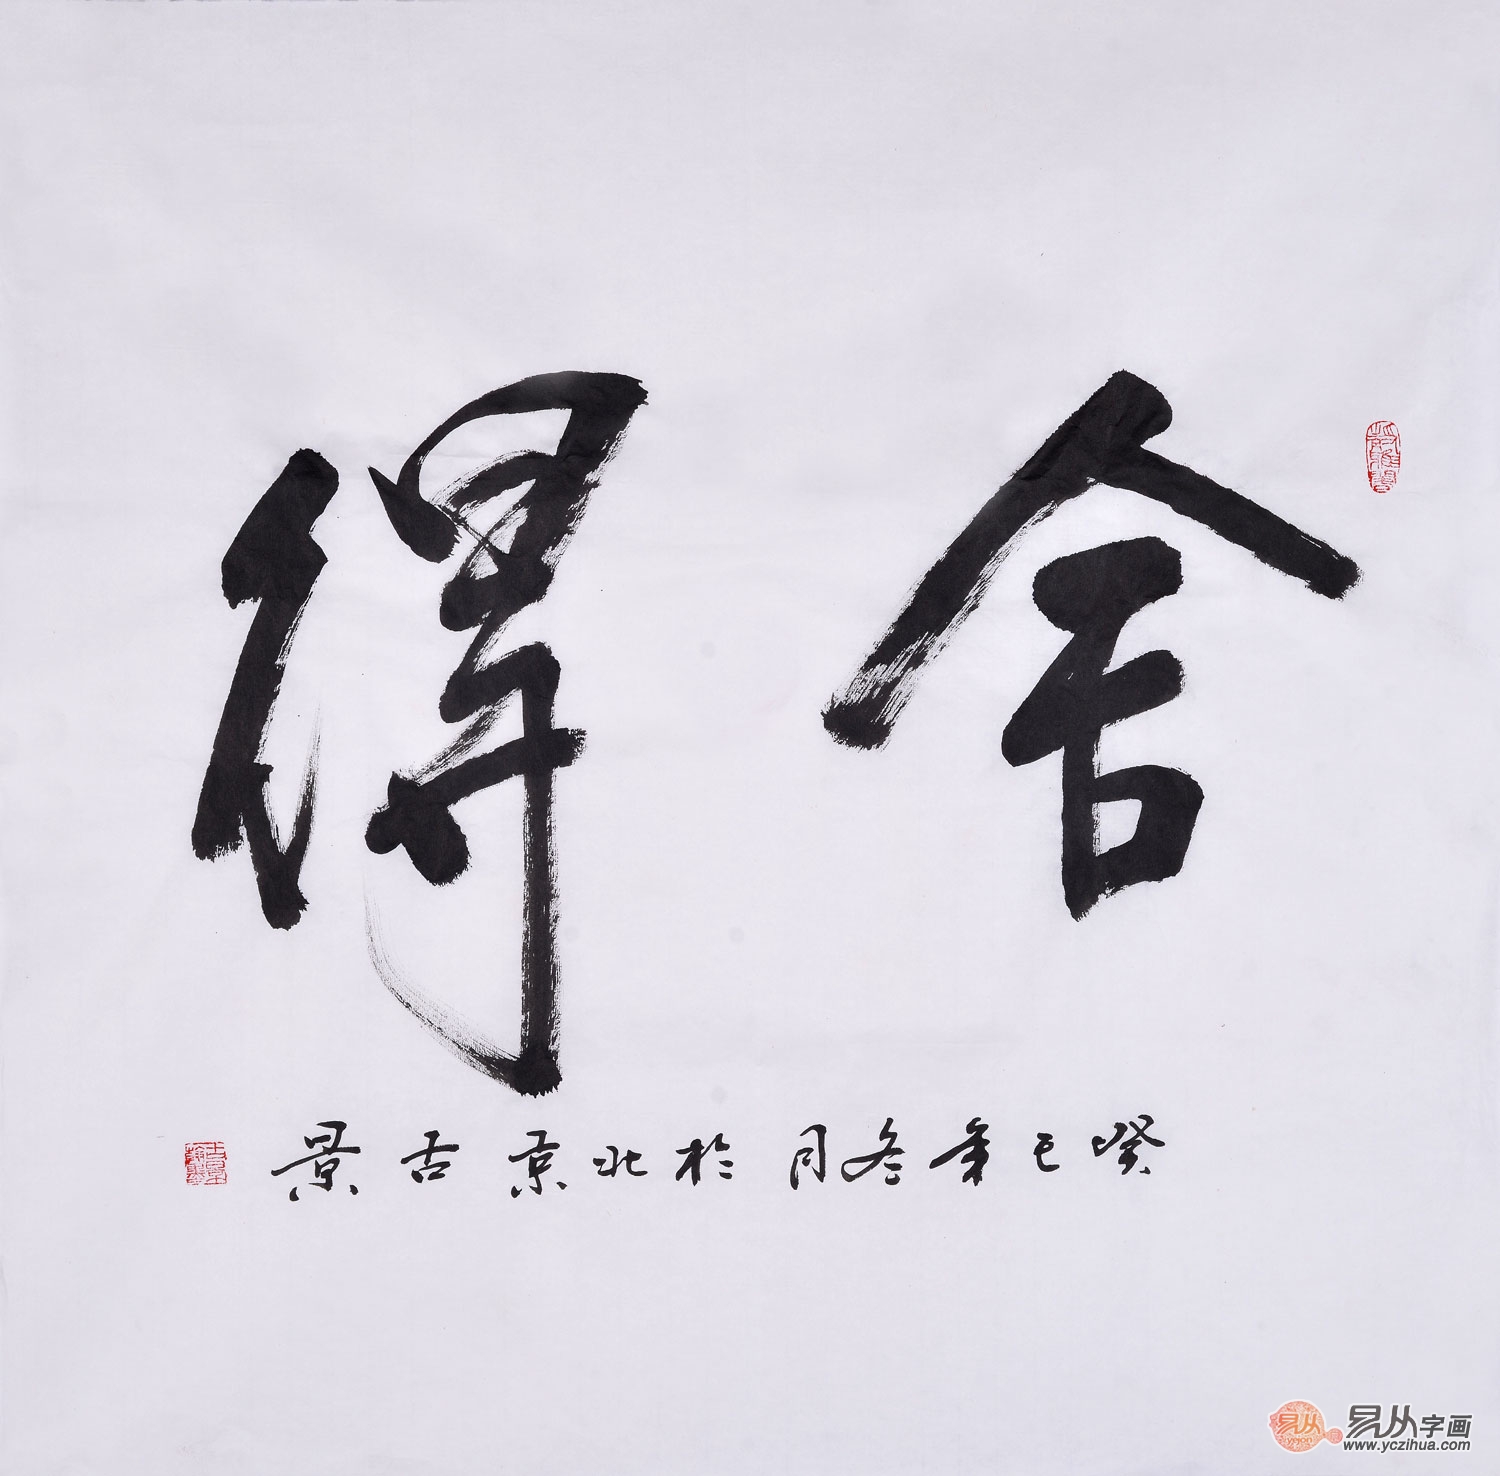 舍得
癸巳年冬月於北京古景
易从字画
yejon
www.yczihua.com